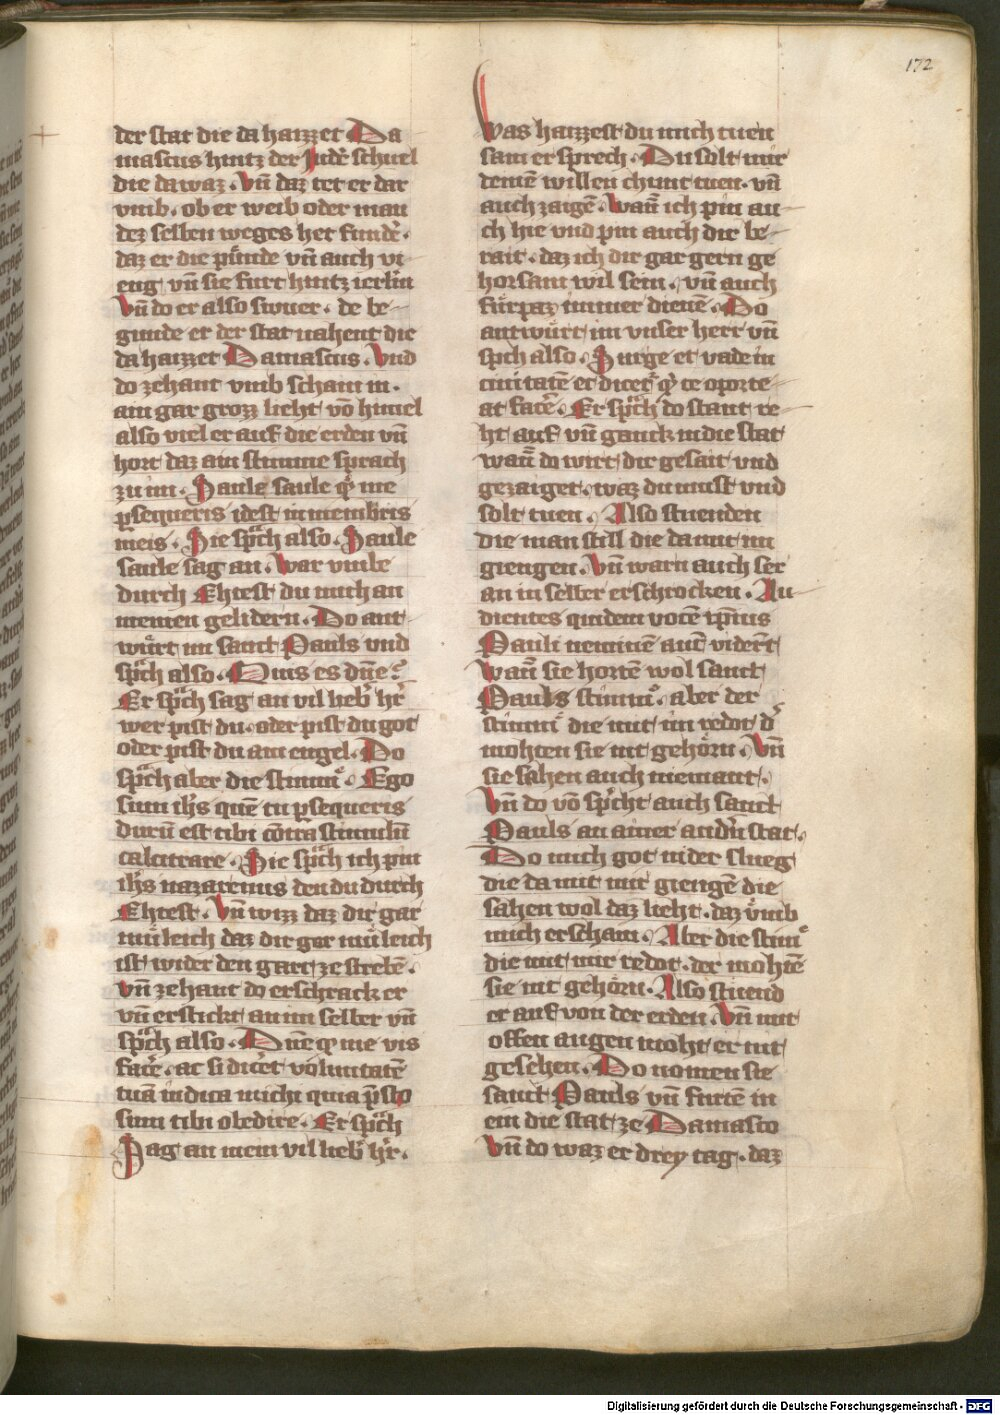 172
der stat die da haizzet Da
mascus hintz der Judē schuel
die da waz. Vn̄ daz tet er dar
vmb. ob er weib oder man
dez selben weges het fundē.
daz er die pünde vn̄ auch vi
eng vn̄ sie furt hintz ierlm̄
Vn̄ do er also fuer. de be
gunde er der stat nahent die
da haizzet Damascus. Vnd
do zehant vmb scham in.
ain gar grozz lieht vō himel
also viel er auf die erden vn̄
hort daz ain stimme sprach
zu im. Saule saule qͥ me
ꝑsequeris idest in membris
meis. Hie spͣch also. Saule
saule sag an. War vmbe
durch Ehtest du mich an
meinen gelidern. Do ant
würt im sanct Pauls vnd
spͣch also. Quis es dn̄e?
Er spͣch sag an vil liebͬ hͬr
wer pist du. oder pist du got
oder pist du ain engel. Do
spͣch aber die stimm̄. Ego
sum ih̄s quē tu ꝑsequeris
durū est tibi cōtra stimulū
calcitrare. Hie spͣch ich pin
ih̄s nazarenus den du durch
Ehtest. Vn̄ wizz daz dir gar
müleich daz dir gar müleich
ist wider den gart ze strebē.
Vn̄ zehant do erschrack er
vn̄ erstickt an im selber vn̄
spͣch also. Dn̄e qͥ me vis
facͤe. ac si dicͤet volūntatē
tuā indica michi quia p̄sto
sum tibi obedire. Er spͣch
Sag an mein vil liebͬ hͬr.
Was haizzest du mich tuen
sam er sprech. Du solt mir
deinē willen chunt tuen. vn̄
auch zaigē. Wan̄ ich pin au
ch hie vnd pin auch dir be
rait. daz ich dir gar gern ge
horsam wil sein. vn̄ auch
fürpaz immer dienē. Do
antwürt im vnser herr vn̄
spͣch also. Surge et vade in
ciuitatē et dicet̄ qͥ te oporte
at facͤe. Er spͣch do stant re
ht auf vn̄ ganck in die stat
wan̄ do wirt dir gesait vnd
gezaiget. waz du must vnd
solt tuen. Also stuenden
die man still die da mit im
giengen. Vn̄ warn auch ser
an in selber erschrocken. Au
dientes quidem vocē ip̄ius
Pauli neminē aut̄ viderūt
Wan̄ sie hortē wol sanct
Pauls stimm̄. aber der
stimm̄ die mit im redot dͬ
mohten sie nit gehörn. Vn̄
sie sahen auch niemant.
Vn̄ do vō spͥcht auch sanct
Pauls an ainer andͬn stat.
Do mich got nider slueg
die da mit mir giengē die
sahen wol daz lieht. daz vͤmb
mich erscham. Aber die stim̄
die mit mir redot. der mohtē
sie nit gehörn. Also stuend
er auf von der erden. Vn̄ mit
offen augen moht er nit
gesehen. Do nomen sie
sanct Pauls vn̄ furtē in
ein die stat ze Damasco
Vn̄ do waz er drey tag. daz
Digitalisierung gefördert durch die Deutsche Forschungsgemeinschaft - DFG